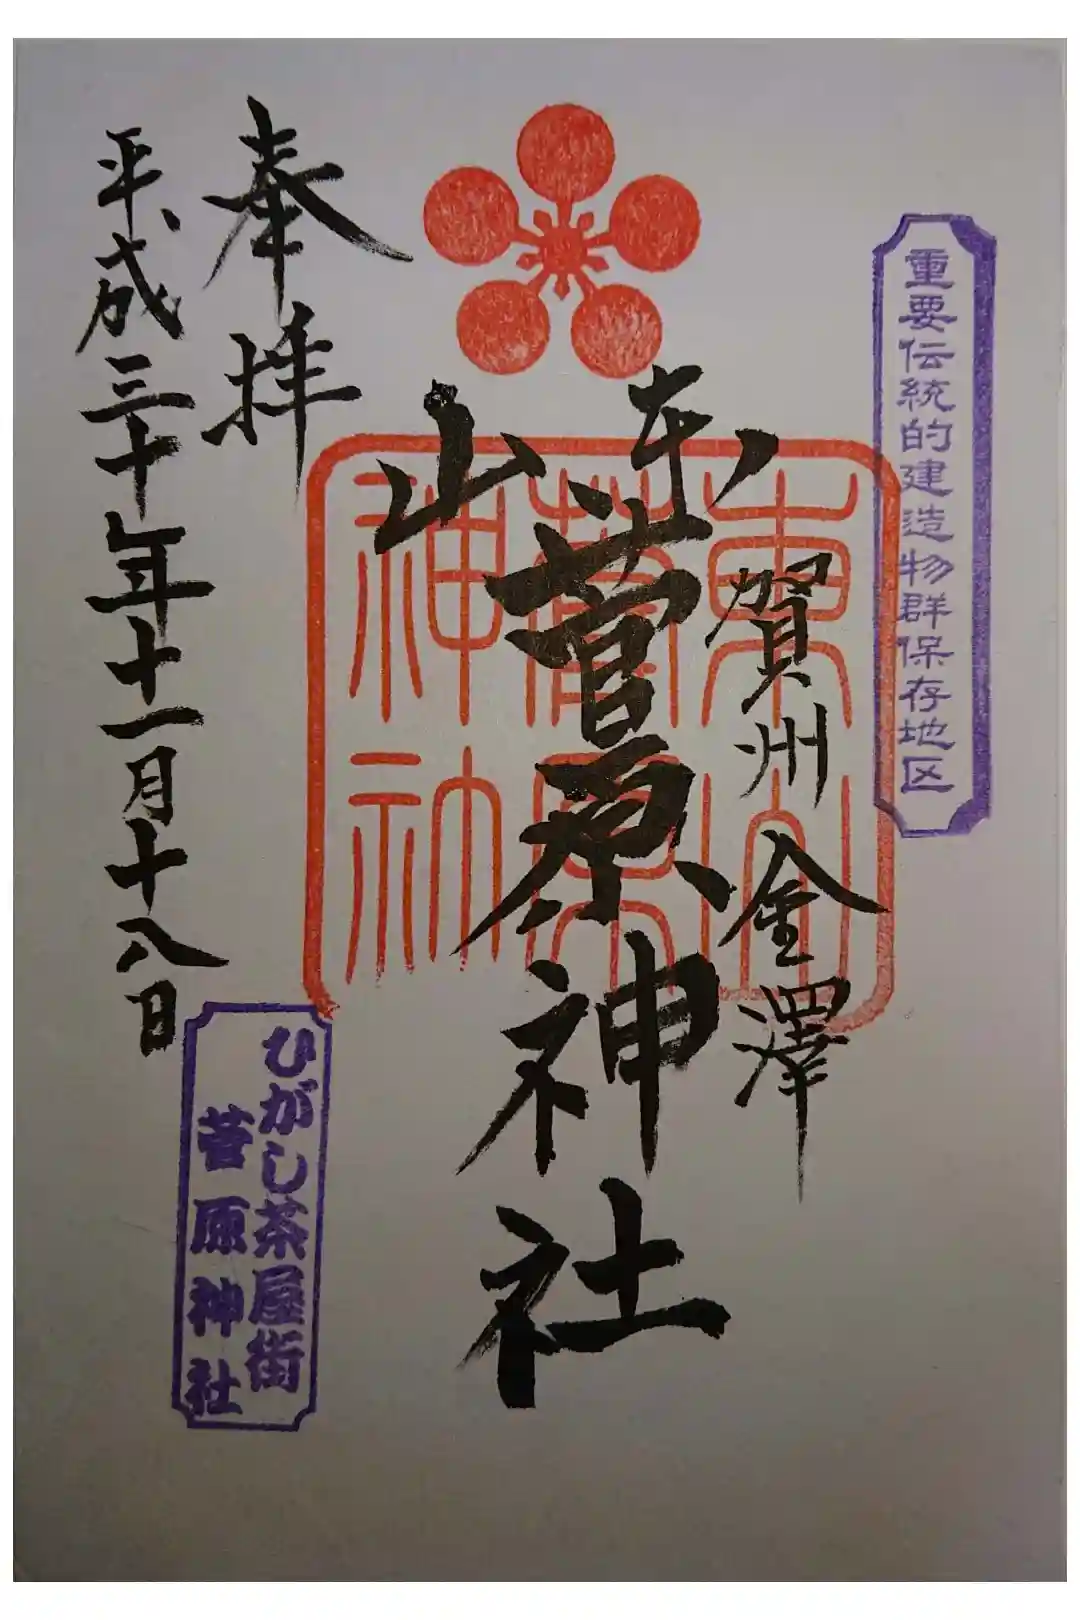 重要伝統的建造物群保存地区
賀州 金澤
東山
菅原神社
東山
菅原
神社
奉拝
平成三十年十一月十八日
ひがし茶屋街
菅原神社